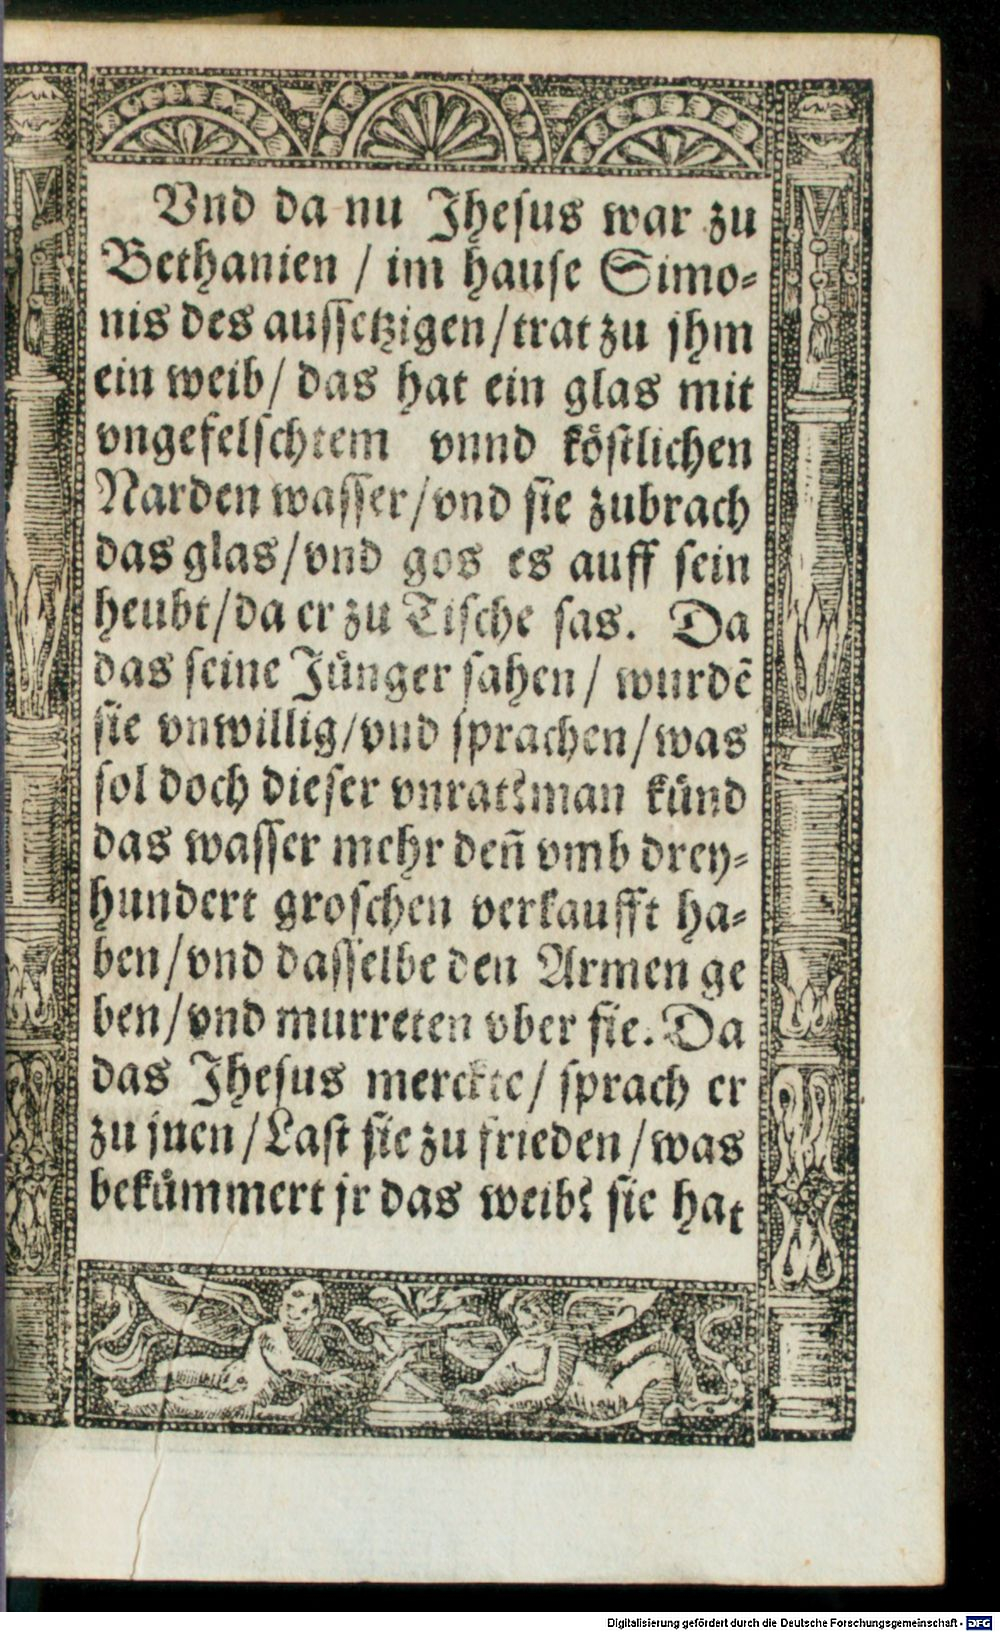 Vnd da nu Jhesus war zu
Bethanien / im hause Simo⸗
nis des aussetzigen/trat zu jhm
ein weib/ das hat ein glas mit
vngefelschtem vnnd köstlichen
Narden wasser/vnd sie zubrach
das glas/vnd gos es auff sein
heubt/da er zu Tische sas. Da
das seine Jünger sahen/ wurdẽ
sie vnwillig/vnd sprachen/was
sol doch dieser vnrat?man künd
das wasser mehr deñ vmb drey⸗
hundert groschen verkaufft ha⸗
ben/vnd dasselbe den Armen ge
ben/vnd murreten vber sie. Da
das Jhesus merckte/ sprach er
zu jnen/Last sie zu frieden/was
bekümmert jr das weib? sie hat
Digitalisierung gefördert durch die Deutsche Forschungsgemeinschaft - DFG